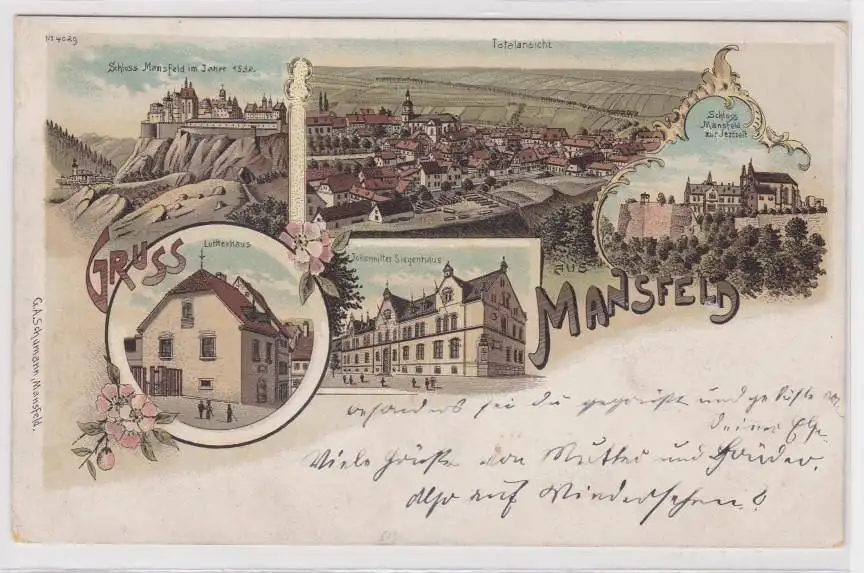 Nº 4029
Schloss Mansfeld im Jahre 1532.
Totalansicht
Schloss
Mansfeld
zur Jetztzeit
GRUSS
AUS
MANSFELD
Lutherhaus
Johanniter Siegenhaus
G.A. Schumann, Mansfeld.
besonders sei du gegrüßt und geküßt von
deiner Else.
Viele Grüße von Mutter und Brüder.
Also auf Wiedersehen!